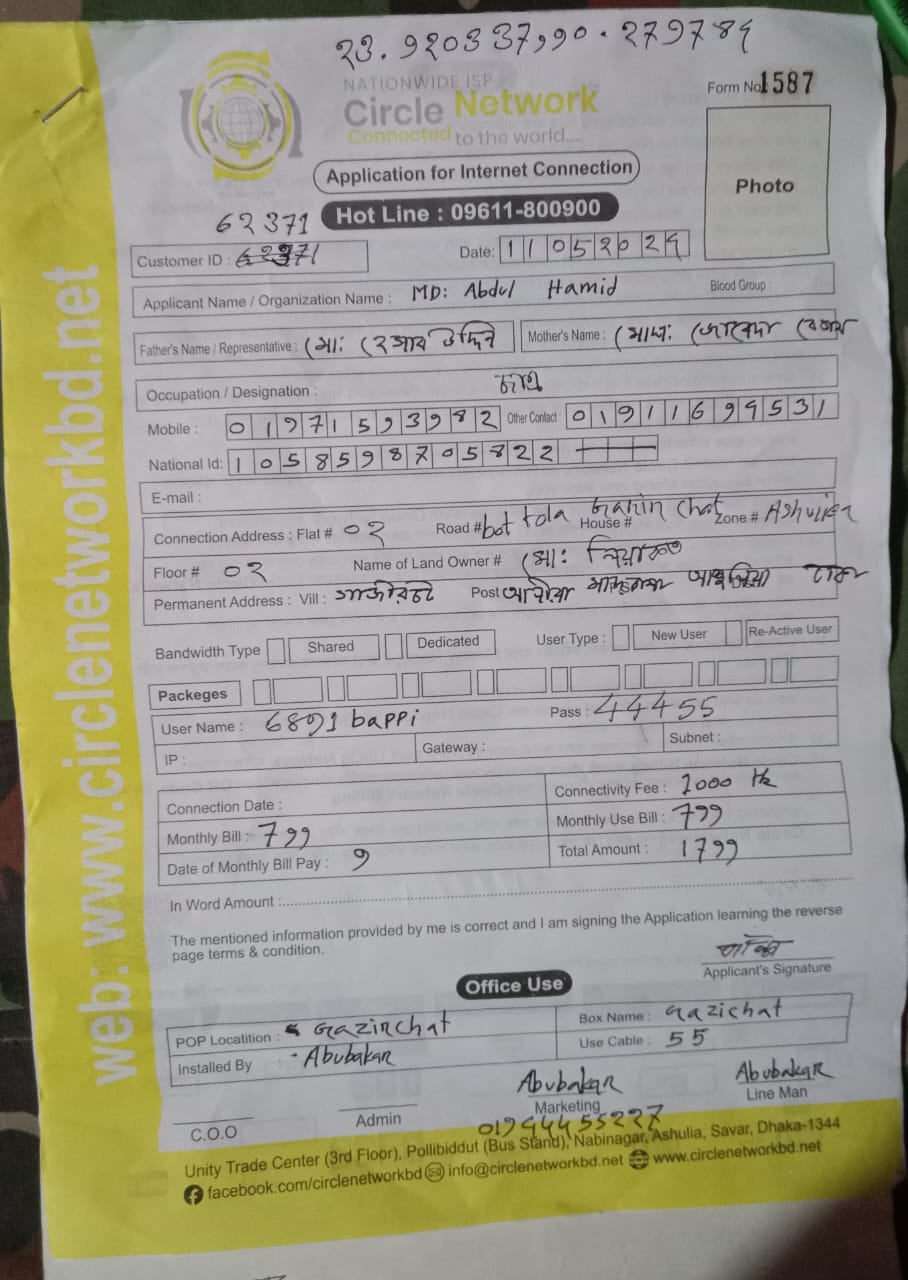 23.920337,90.279784
NATIONWIDE ISP
Circle Network
Connected to the world.....
Form No. 1587
Application for Internet Connection
Photo
Hot Line : 09611-800900
62371
Customer ID :
Date: 11052024
Applicant Name / Organization Name : MD: Abdul Hamid
Blood Group :
Father's Name / Representative : মো: উদ্দিন
Mother's Name : মোছা: বেগম
Occupation / Designation :
Mobile : 01971593982 Other Contact : 01911694531
National Id: 1058598705822
E-mail :
Connection Address : Flat # 02 Road # bot tola Gazin chat House # Zone # Ashulia
Floor # 02 Name of Land Owner # মো: লিয়াকত
Permanent Address : Vill : গাজিরচট Post আশুলিয়া ঢাকা
Bandwidth Type Shared Dedicated User Type : New User Re-Active User
Packeges
User Name : 6891bappi Pass : 44455
IP : Gateway : Subnet :
Connection Date : Connectivity Fee : 1000 tk
Monthly Bill : 799 Monthly Use Bill : 799
Date of Monthly Bill Pay : 9 Total Amount : 1799
In Word Amount :
The mentioned information provided by me is correct and I am signing the Application learning the reverse
page terms & condition.
Applicant's Signature
Office Use
POP Locatition : Gazirchat Box Name : Gazichat
Installed By : Abubakar Use Cable : 55
Abubakar Abubakar
C.O.O Admin Marketing Line Man
01944455227
Unity Trade Center (3rd Floor), Pollibiddut (Bus Stand), Nabinagar, Ashulia, Savar, Dhaka-1344
facebook.com/circlenetworkbd info@circlenetworkbd.net www.circlenetworkbd.net
web: www.circlenetworkbd.net